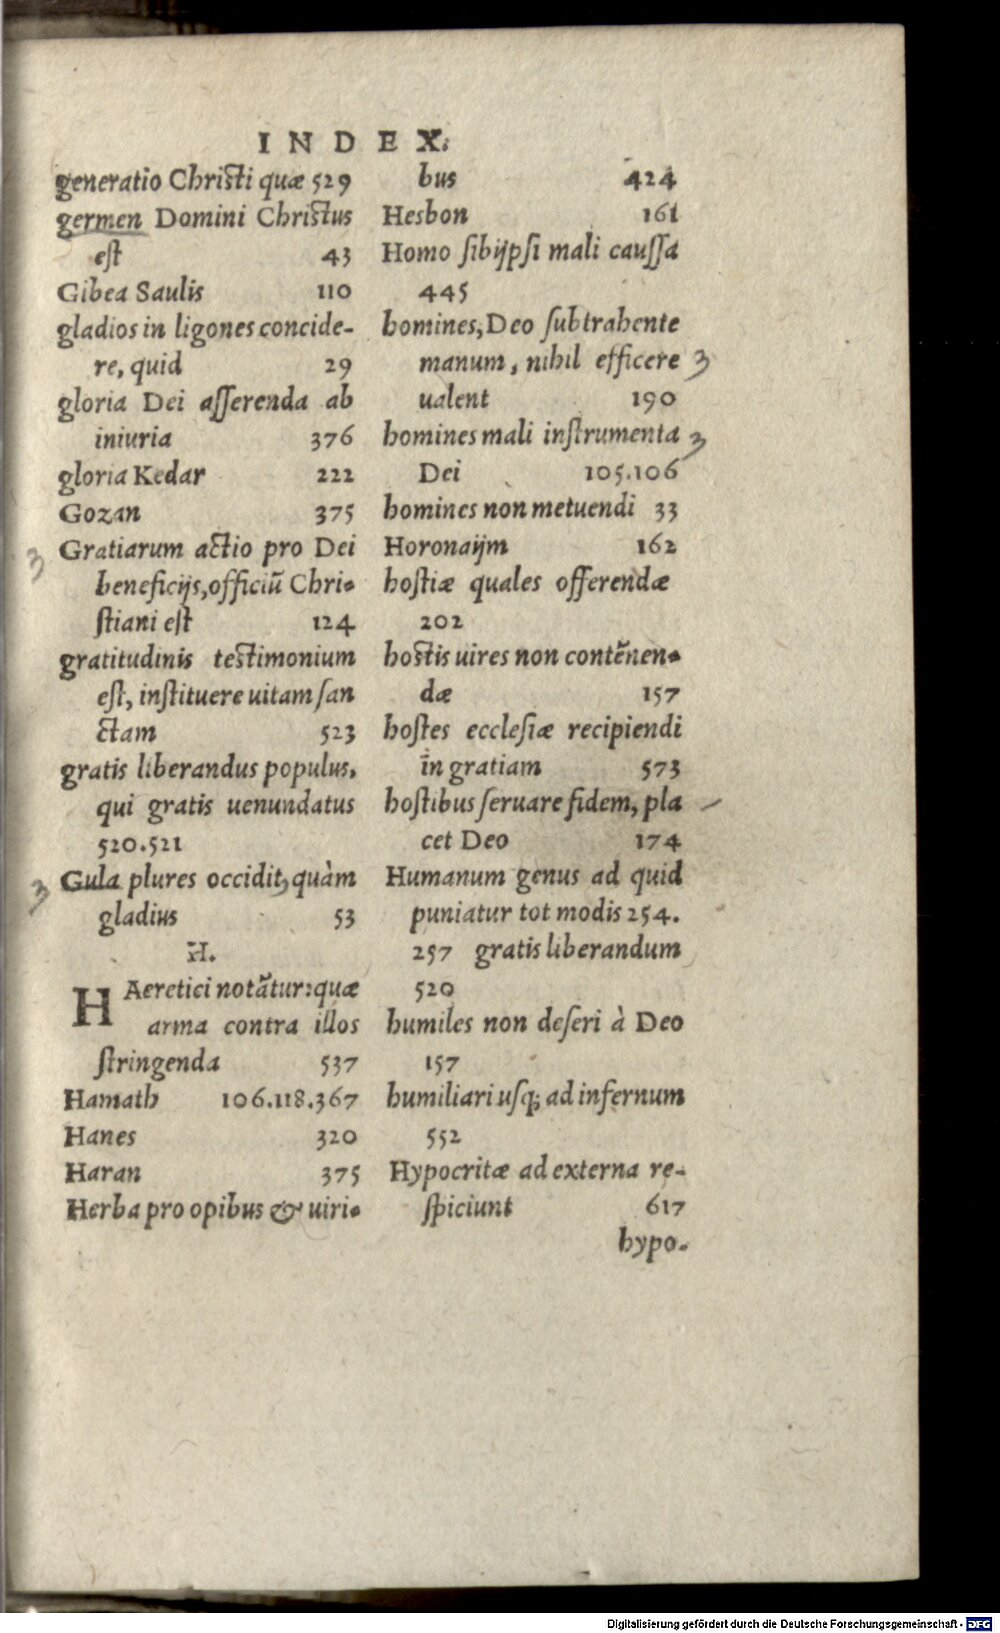 INDEX.
generatio Christi quæ 529
germen Domini Christus
est 43
Gibea Saulis 110
gladios in ligones concide-
re, quid 29
gloria Dei asserenda ab
iniuria 376
gloria Kedar 222
Gozan 375
Gratiarum actio pro Dei
beneficijs, officiũ Chri-
stiani est 124
gratitudinis testimonium
est, instituere uitam san
ctam 523
gratis liberandus populus,
qui gratis uenundatus
520.521
Gula plures occidit, quàm
gladius 53
H.
HAeretici notãtur: quæ
arma contra illos
stringenda 537
Hamath 106.118.367
Hanes 320
Haran 375
Herba pro opibus & uiri-
bus 424
Hesbon 161
Homo sibijpsi mali caussa
445
homines, Deo subtrahente
manum, nihil efficere
ualent 190
homines mali instrumenta
Dei 105.106
homines non metuendi 33
Horonaijm 162
hostiæ quales offerendæ
202
hostis uires non contẽnen-
dæ 157
hostes ecclesiæ recipiendi
in gratiam 573
hostibus seruare fidem, pla
cet Deo 174
Humanum genus ad quid
puniatur tot modis 254.
257 gratis liberandum
520
humiles non deseri à Deo
157
humiliari usq; ad infernum
552
Hypocritæ ad externa re-
spiciunt 617
hypo-
Digitalisierung gefördert durch die Deutsche Forschungsgemeinschaft - DFG